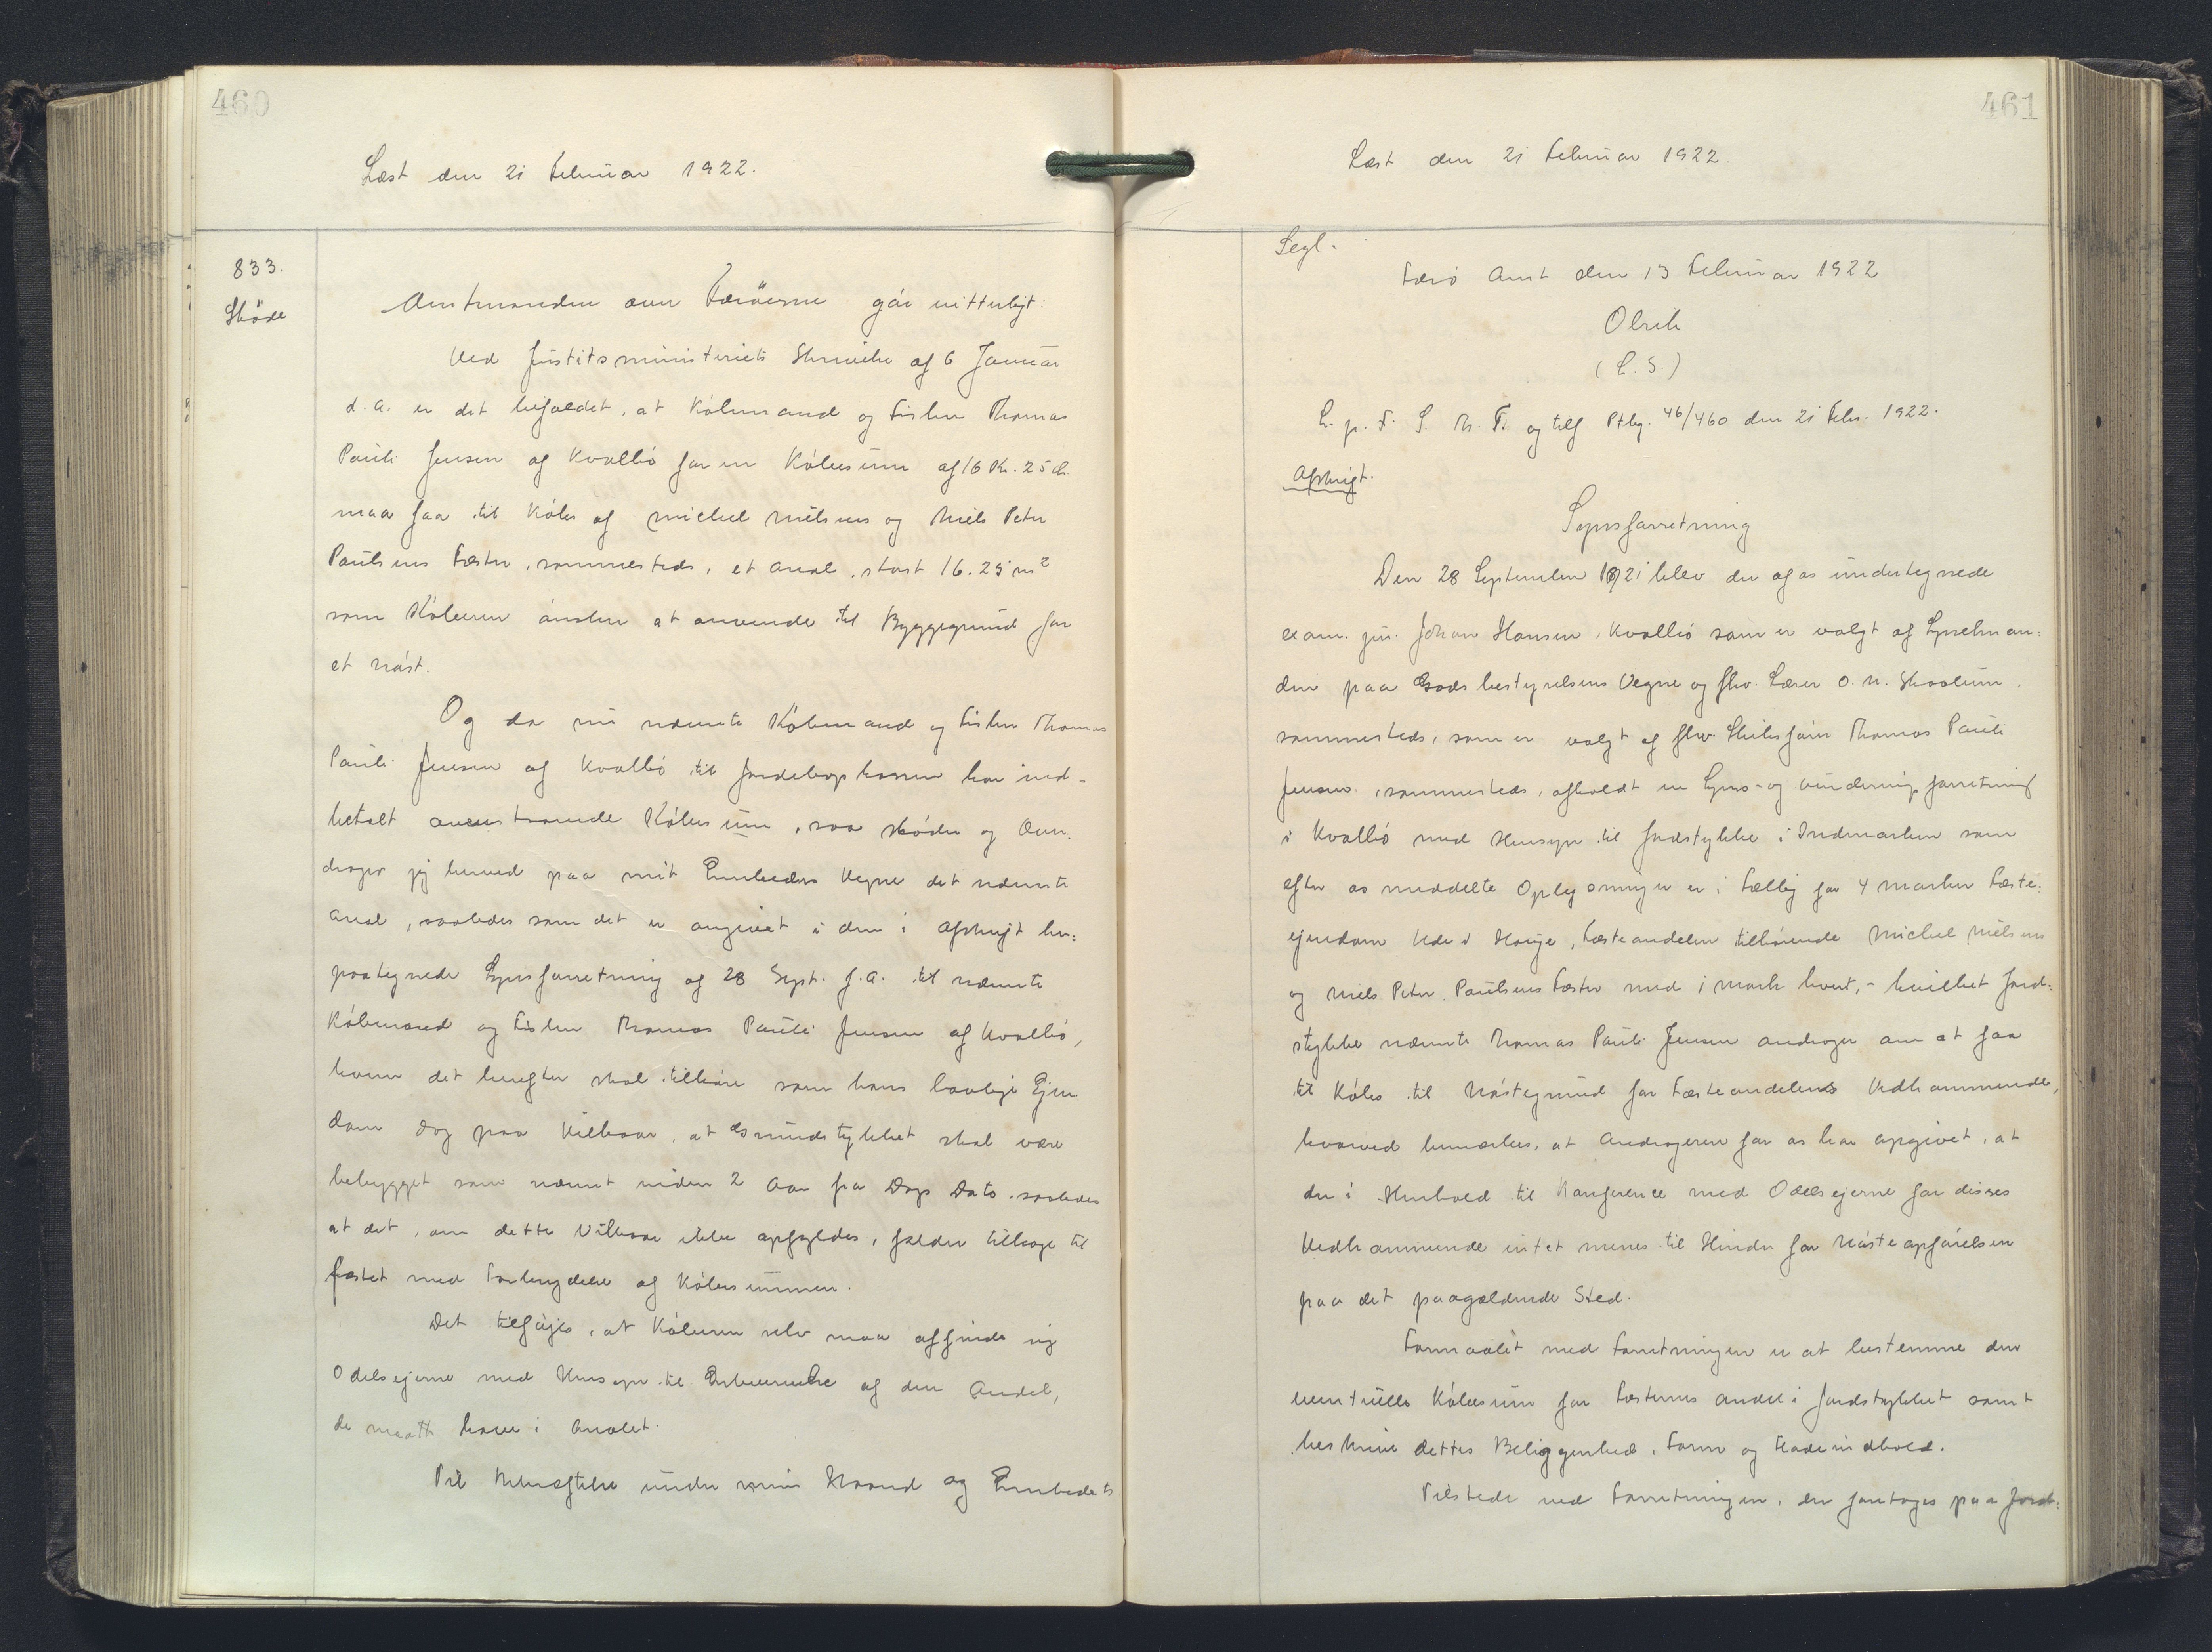 460
Læst den 21 Februar 1922.
833.
Skøde
Amtmanden over Færøerne gør vitterligt:
Ved Justitsministeriets Skrivelse af 6 Januar
d.A. er det bifaldet, at Købmand og Fisker Thomas
Pauli Jensen af Kvalbø for en Købesum af 16 Kr. 25 Ø.
maa faa til Købs af Michel Nielsens og Niels Peter
Poulsens Fæster, sammesteds, et Areal, stort 16.25 m²
som Køberen ønsker at anvende til Byggegrund for
et Nøst.
Og da nu nævnte Købmand og Fisker Thomas
Pauli Jensen af Kvalbø til Jordebogskassen har ind-
betalt ovenstaaende Købesum, saa skøder og over-
drager jeg herved paa mit Embedes Vegne det nævnte
Areal, saaledes som det er angivet i den i Afskrift her=
paategnede Synsforretning af 28 Sept. f.A. til nævnte
Købmand og Fisker Thomas Pauli Jensen af Kvalbø,
hvem det herefter skal tilhøre som hans lovlige Ejen
dom dog paa Vilkaar, at Grundstykket skal være
bebygget som nævnt inden 2 Aar fra Dags Dato, saaledes
at det, om dette Vilkaar ikke opfyldes, falder tilbage til
fæstet med Fortrydelse af Købesummen.
Det tilføjes, at Køberen selv maa affinde sig
Odelsejerne med Hensyn til Erhvervelse af den Andel,
de maatte have i Arealet.
Til Bekræftelse under min Haand og Embedets
461
Læst den 21 Februar 1922
Segl.
Færø Amt den 13 Februar 1922
Olrik
(L.S.)
L. p. F. S. N. T. og tilf Ptbg. 46/460 den 21 Febr. 1922.
Afskrift.
Synsforretning
Den 28 September 1921 blev der af os undertegnede
exam. jur. Johan Hansen, Kvalbø som er valgt af Sysselman=
den paa Godsbestyrelsens Vegne og fhv. Lærer O. N. Skaalum,
sammesteds, som er valgt af fhv. Skibsfører Thomas Pauli
Jensen, sammesteds, afholdt en Syns- og Vurderingsforretning
i Kvalbø med Hensyn til Jordstykke i Indmarken som
efter os meddelte Oplysninger er i Fællig for 4 Marker Fæste=
ejendom Ude i Hauge, Fæsteandelen tilhørende Michel Nielsens
og Niels Peter Poulsens Fæster med 1 Mark hver, - hvilket Jord=
stykke nævnte Thomas Pauli Jensen andrager om at faa
til Købs til Nøstegrund for Fæsteandelens Vedkommende,
hvorved bemærkes, at Andrageren for os har opgivet, at
der i Henhold til Konference med Odelsejerne for disses
Vedkommende intet menes til Hinder for Nøsteopførelsen
paa det paagældende Sted.
Formaalet med Forretningen er at bestemme den
eventuelle Købesum for Fæsternes Andel i Jordstykket samt
beskrive dettes Beliggenhed, Form og Fladeindhold.
Tilstede ved Forretningen, der foretoges paa Jord=